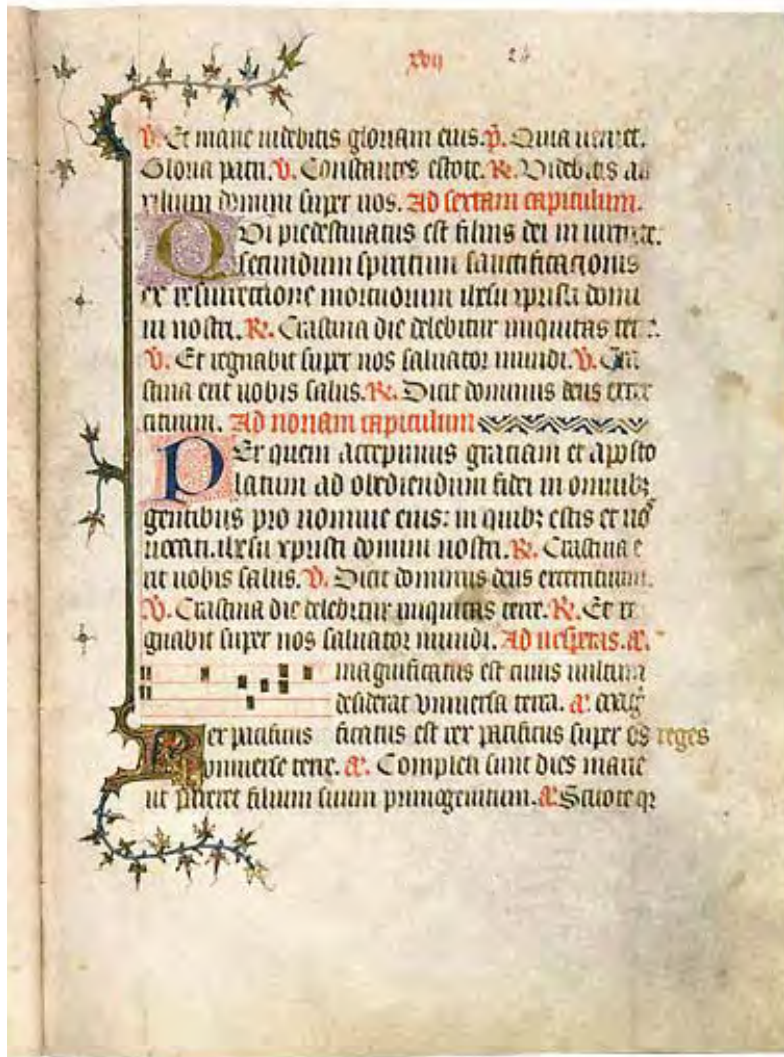 xvij 24
V. Et mane videbitis gloriam eius. P. Quia veniet.
Gloria patri. V. Constantes estote. R. Videbitis au
xilium domini super vos. Ad sextam capitulum.
QUi predestinatus est filius dei in virtute.
secundum spiritum sanctificacionis
ex resurrectione mortuorum ihesu xpristi domi
ni nostri. R. Crastina die delebitur iniquitas terre.
V. Et regnabit super nos saluator mundi. V. Cra
stina erit uobis salus. R. Dicit dominus deus exer
cituum. Ad nonam capitulum
PEr quem accepimus graciam et aposto
latum ad obediendum fidei in omnibꝫ
gentibus pro nomine eius: in quibꝫ estis et uos
uocati. ihesu xpristi domini nostri. R. Crastina e
rit uobis salus. V. Dicit dominus deus exercituum.
V. Crastina die delebitur iniquitas terre. R. Et re
gnabit super nos saluator mundi. Ad uesperas. a.
magnificatus est cuius uultum
desiderat vniuersa terra. a. magi
Rex pacificus ficatus est rex pacificus super os reges
vniuerse terre. a. Completi sunt dies marie
ut pareret filium suum primogenitum. a. Scitote qz